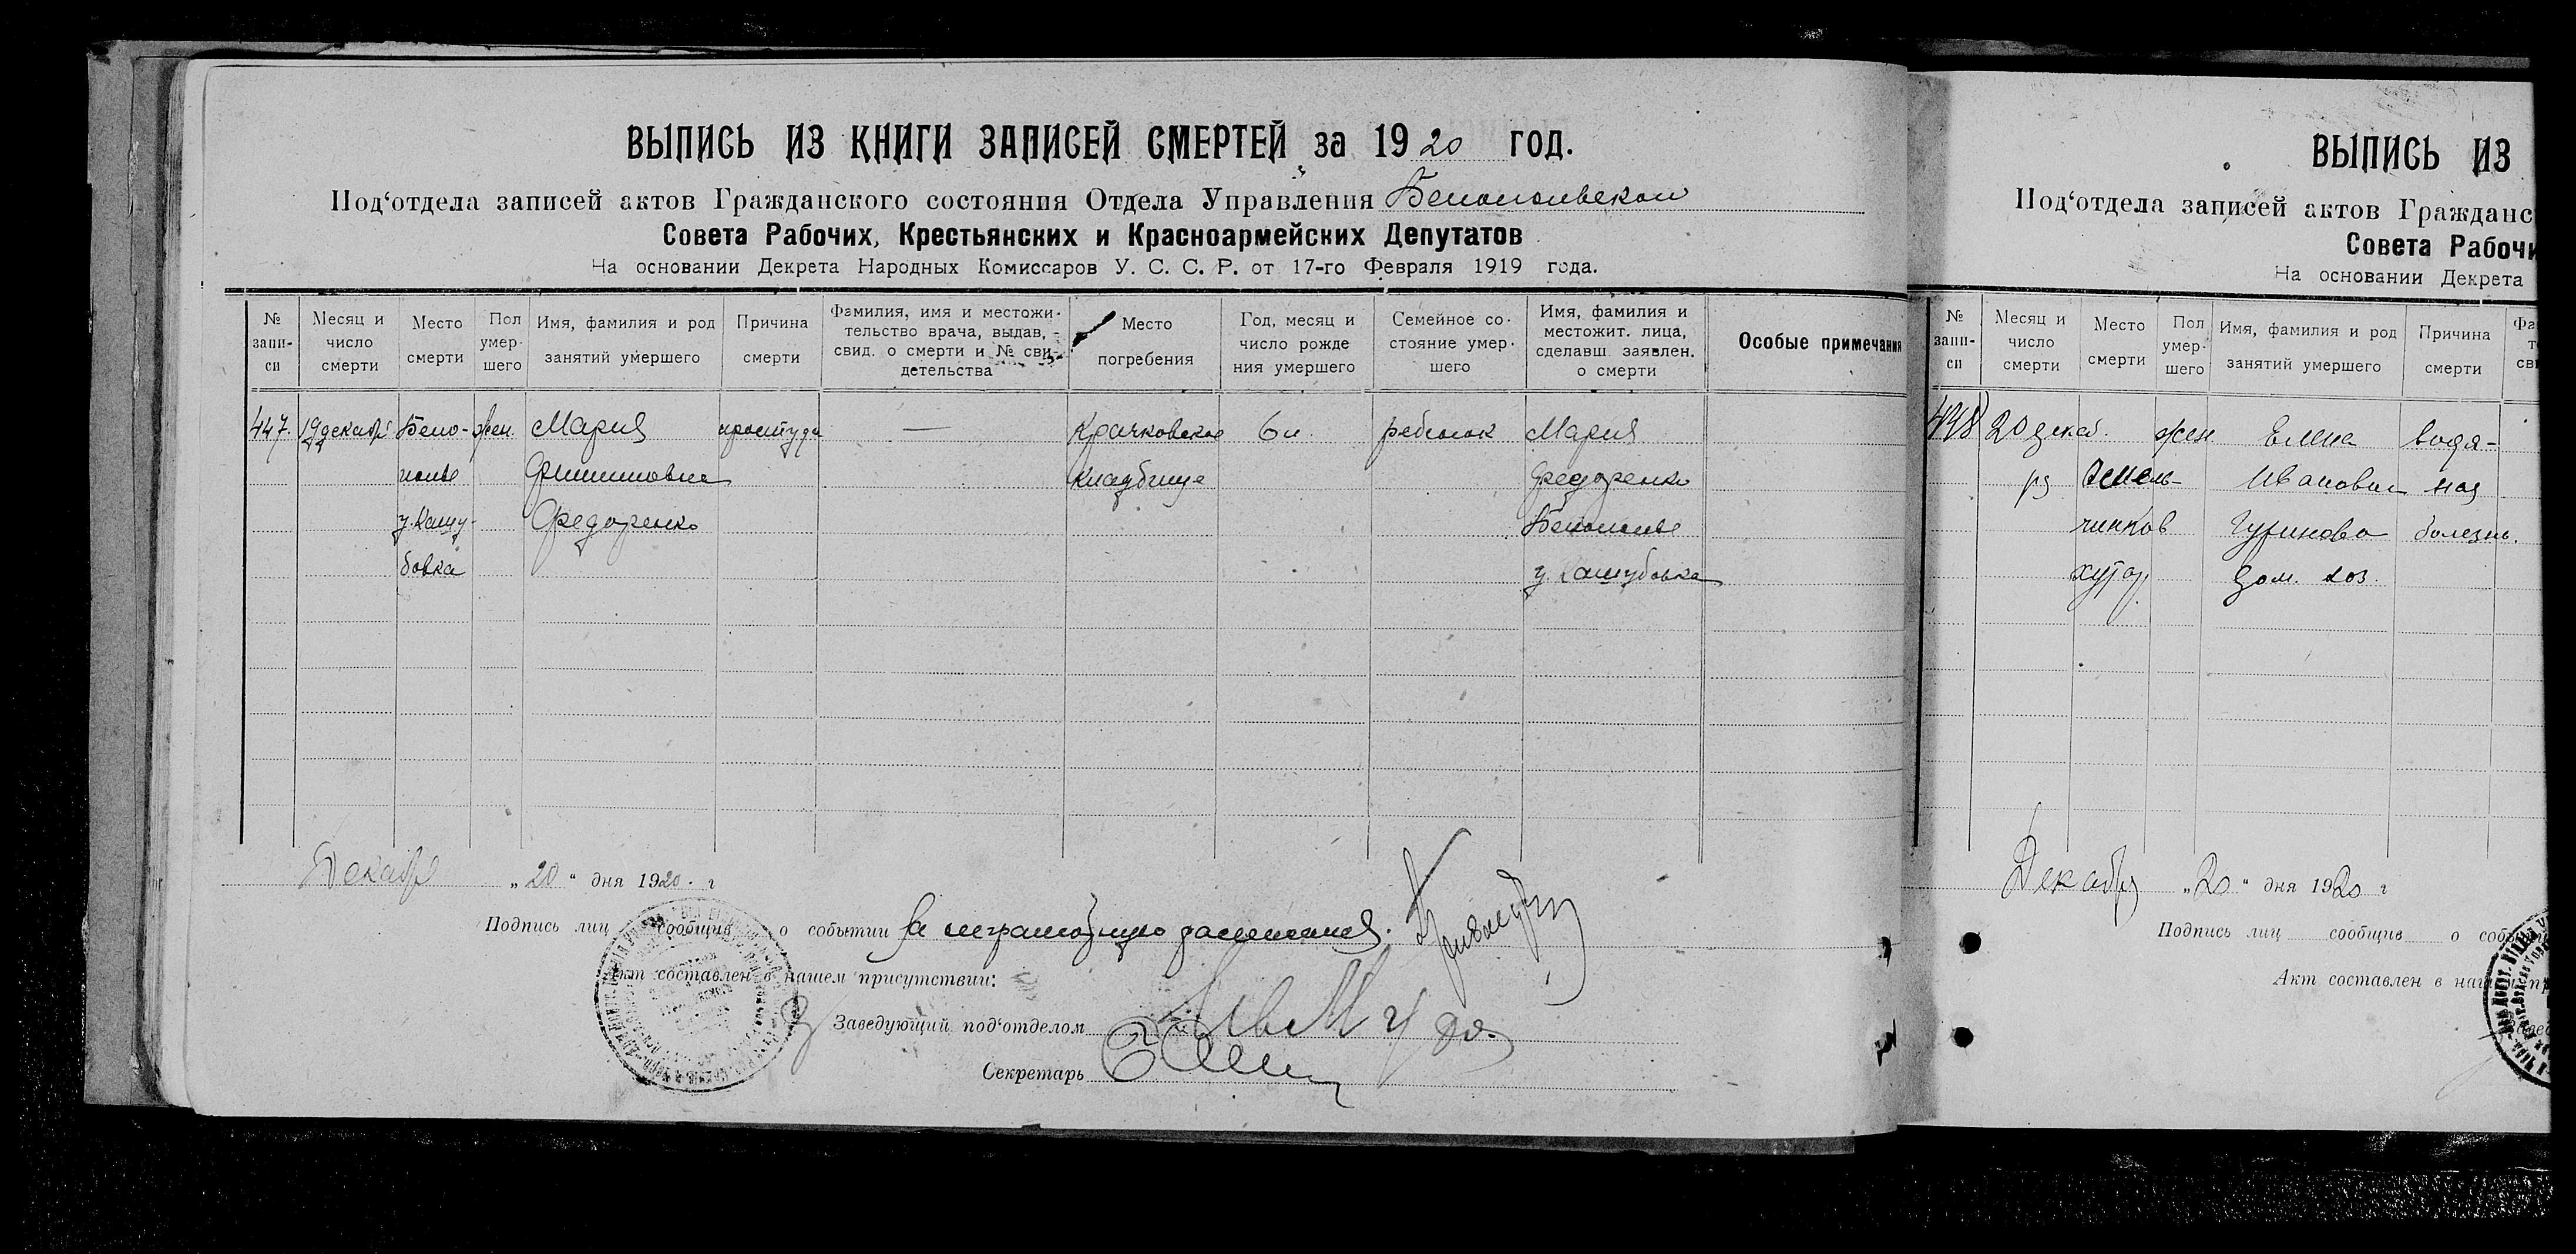 ВЫПИСЬ ИЗ КНИГИ ЗАПИСЕЙ СМЕРТЕЙ за 1920 год.
Под‘отдела записей актов Гражданского состояния Отдела Управления Белопольской
Совета Рабочих, Крестьянских и Красноармейских Депутатов
На основании Декрета Народных Комиссаров У. С. С. Р. от 17-го Февраля 1919 года.
№ запи-си
Месяц и число смерти
Место смерти
Пол умер-шего
Имя, фамилия и род занятий умершего
Причина смерти
Фамилия, имя и местожи-тельство врача, выдав, свид. о смерти и № сви-детельства
Место погребения
Год, месяц и число рожде ния умершего
Семейное со-стояние умер-шего
Имя, фамилия и местожит. лица, сделавш. заявлен. о смерти
Особые примечания
447. 19 декабр Бело- жен Мария простуда — Крачковское 6 м. ребенок Мария
полье Филипповна кладбище Федоренко
у. Кашу- Федоренко Белополье
бовка у. Кашубовка
Декабря „20“ дня 1920. г
Подпись лиц сообщив о событии за неграмотную
Акт составлен в нашем присутствии:
Заведующий под‘отделом
Секретарь
ВЫПИСЬ ИЗ
Под‘отдела записей актов Гражданс
Совета Рабочи
На основании Декрета
№ запи-си
Месяц и число смерти
Место смерти
Пол умер-шего
Имя, фамилия и род занятий умершего
Причина смерти
448 20 декаб. жен Елена водя-
ря Омель- Ивановна ная
ченков Гуринова болезнь.
хутор дом. хоз.
Декабря „20“ дня 1920 г
Подпись лиц сообщив о событ
Акт составлен в наш